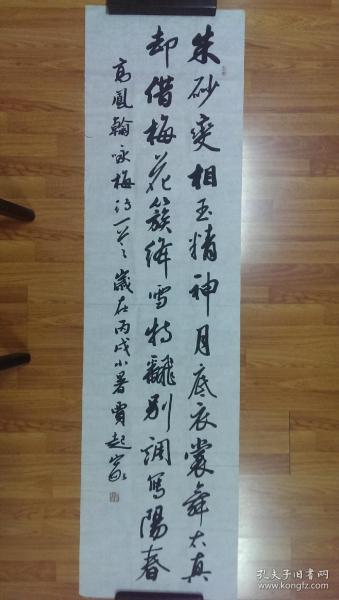 朱砂变相玉精神月底衣裳舞太真
却借梅花簇绛雪特翻别调写陽春
高鳳翰咏梅诗一首 歲在丙戌小暑 賈起家
孔夫子旧书网